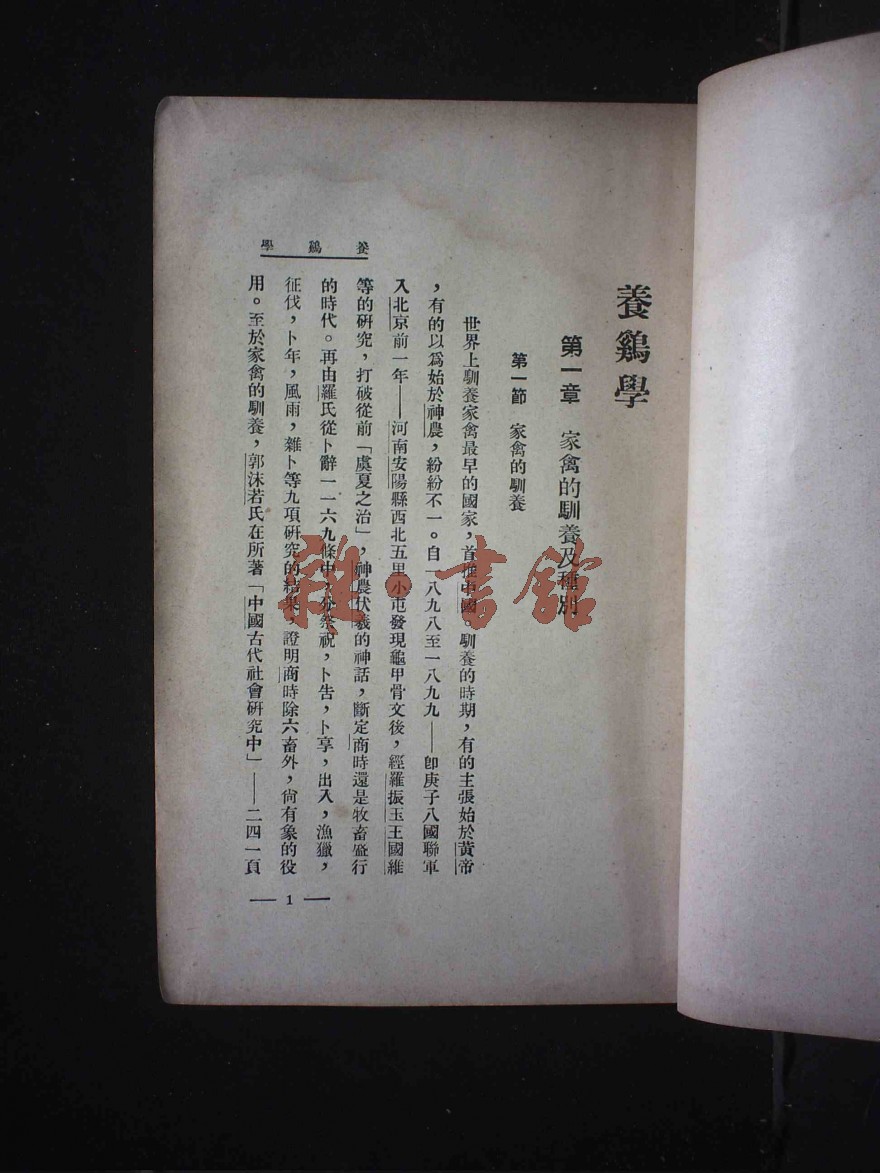 養鷄學
第一章　家禽的馴養及種別
第一節　家禽的馴養
世界上馴養家禽最早的國家，首推中國，馴養的時期，有的主張始於黃帝
，有的以爲始於神農，紛紛不一。自一八九八至一八九九——卽庚子八國聯軍
入北京前一年——河南安陽縣西北五里小屯發現龜甲骨文後，經羅振玉王國維
等的研究，打破從前「虞夏之治」，神農伏羲的神話，斷定商時還是牧畜盛行
的時代。再由羅氏從卜辭一一六九條中，分祭祝，卜告，卜享，出入，漁獵，
征伐，卜年，風雨，雜卜等九項研究的結果，證明商時除六畜外，尙有象的役
用。至於家禽的馴養，郭沫若氏在所著「中國古代社會研究中」——二四一頁
養鷄學
— 1 —
雜·書館